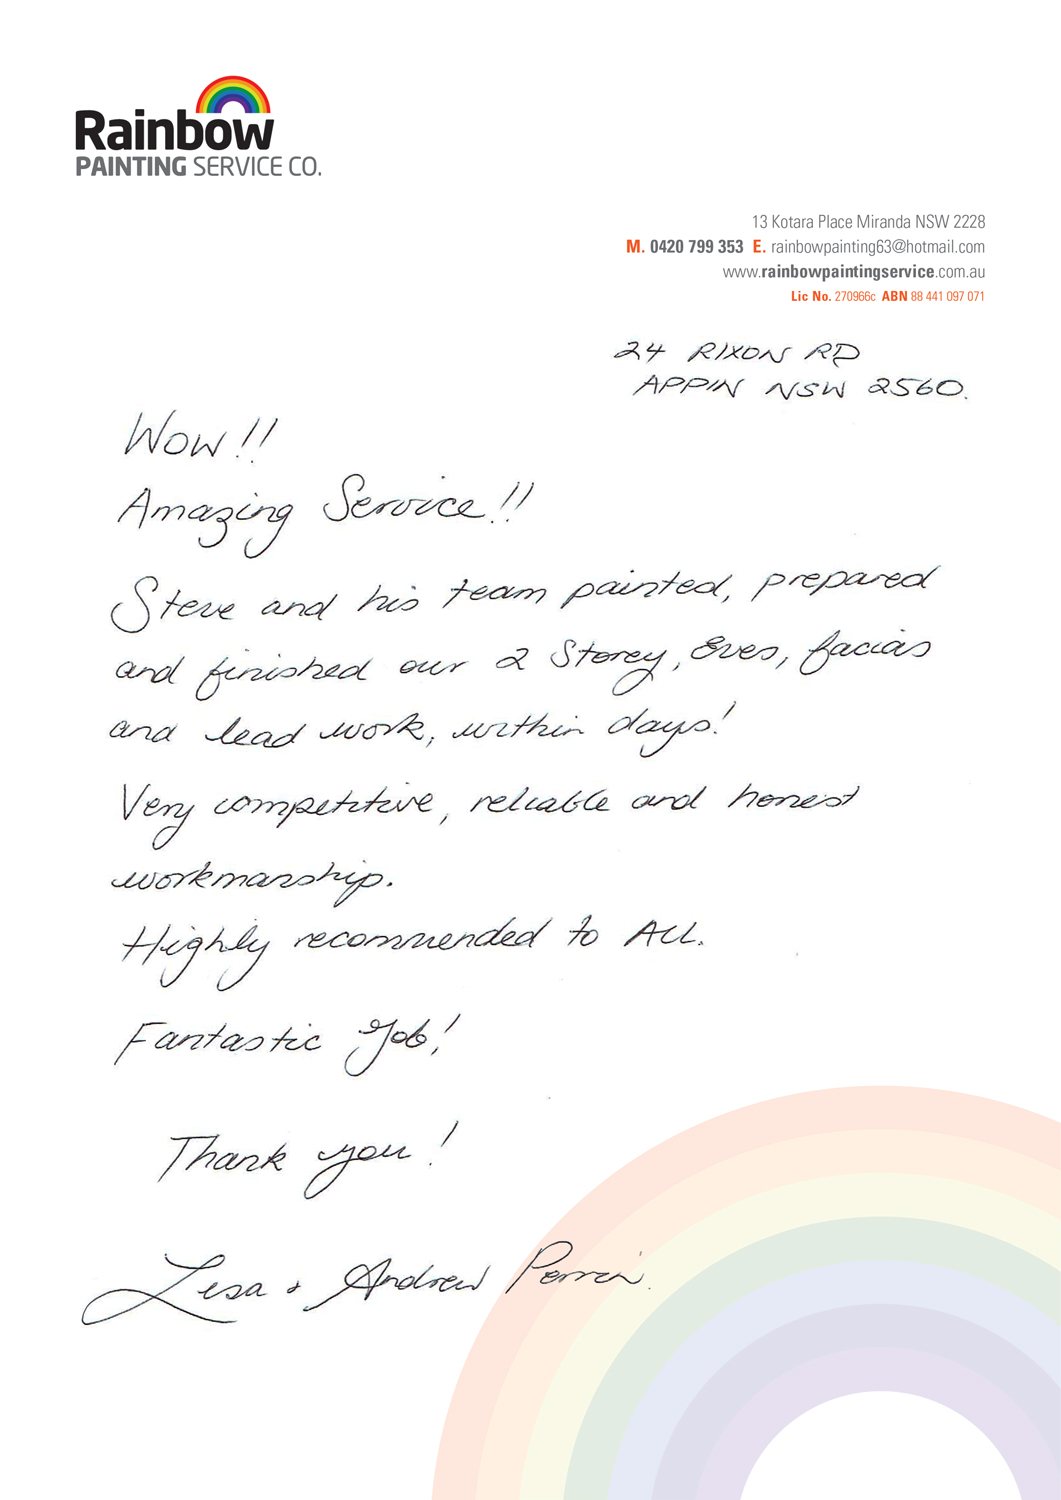 Rainbow
PAINTING SERVICE CO.
13 Kotara Place Miranda NSW 2228
M. 0420 799 353 E. rainbowpainting63@hotmail.com
www.rainbowpaintingservice.com.au
Lic No. 270966c ABN 88 441 097 071
24 RIXON RD
APPIN NSW 2560.
Wow!!
Amazing Service!!
Steve and his team painted, prepared
and finished our 2 Storey, Eves, facias
and lead work, within days!
Very competitive, reliable and honest
workmanship.
Highly recommended to ALL.
Fantastic Job!
Thank you!
Lisa + Andrew Perrin.